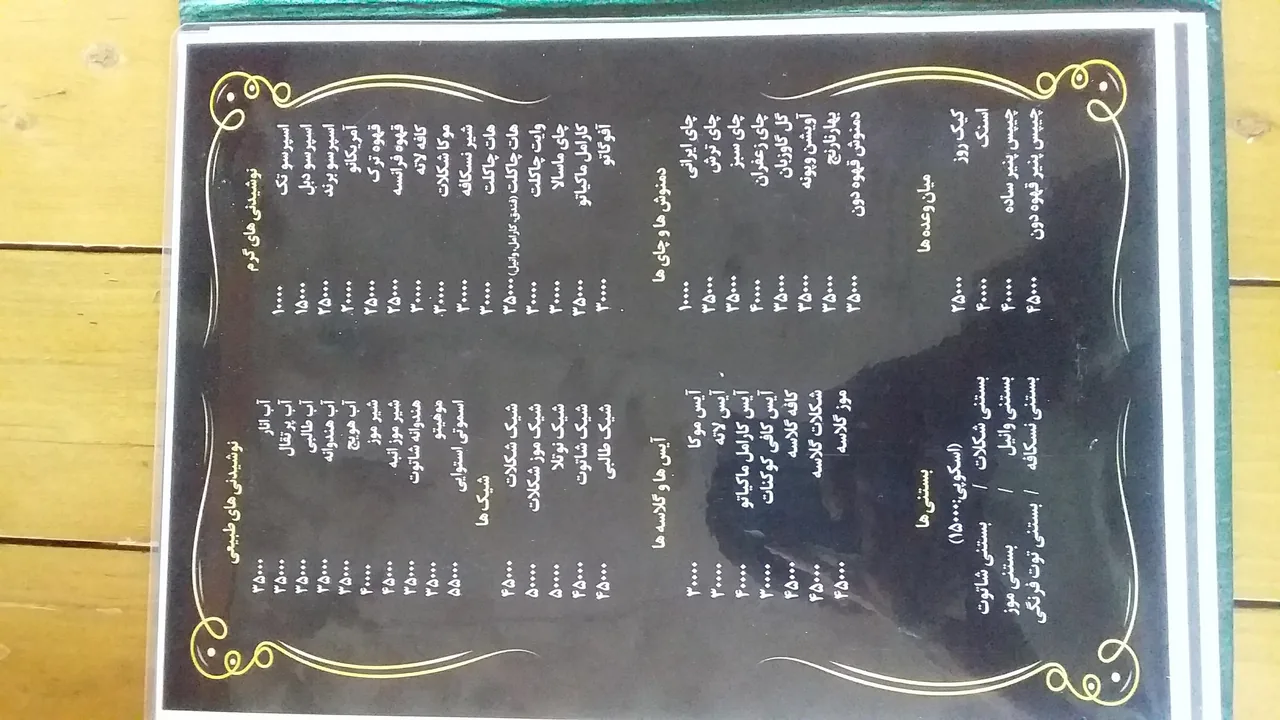 نوشیدنی های گرم
اسپرسو تک ۱۰۰۰۰
اسپرسو دبل ۱۵۰۰۰
اسپرسو برند ۲۵۰۰۰
آمریکانو ۲۰۰۰۰
قهوه ترک ۲۵۰۰۰
قهوه فرانسه ۲۵۰۰۰
کافه لاته ۳۰۰۰۰
موکا شکلات ۳۰۰۰۰
شیر نسکافه ۳۰۰۰۰
هات چاکلت ۳۰۰۰۰
هات چاکلت (فندق،کارامل،وانیل) ۳۵۰۰۰
وایت چاکلت ۳۰۰۰۰
چای ماسالا ۳۰۰۰۰
کارامل ماکیاتو ۳۵۰۰۰
آفوگاتو ۳۰۰۰۰
دمنوش ها و چای ها
چای ایرانی ۱۰۰۰۰
چای ترش ۳۵۰۰۰
چای سبز ۳۵۰۰۰
چای زعفران ۴۰۰۰۰
گل گاوزبان ۳۵۰۰۰
آویشن و پونه ۳۵۰۰۰
بهارنارنج ۳۵۰۰۰
دمنوش قهوه دون ۳۵۰۰۰
میان وعده ها
کیک روز ۲۵۰۰۰
اسنک ۴۰۰۰۰
چیپس پنیر ساده ۴۰۰۰۰
چیپس پنیر قهوه دون ۴۵۰۰۰
نوشیدنی های طبیعی
آب انار ۳۵۰۰۰
آب پرتقال ۳۵۰۰۰
آب طالبی ۳۵۰۰۰
آب هندوانه ۳۵۰۰۰
آب هویج ۳۵۰۰۰
شیر موز ۴۰۰۰۰
شیر موز انبه ۴۵۰۰۰
هندوانه شاتوت ۳۵۰۰۰
موهیتو ۳۵۰۰۰
اسموتی استوایی ۵۵۰۰۰
شیک ها
شیک شکلات ۴۵۰۰۰
شیک موز شکلات ۵۰۰۰۰
شیک نوتلا ۵۰۰۰۰
شیک شاتوت ۴۵۰۰۰
شیک طالبی ۴۵۰۰۰
آیس ها و گلاسه ها
آیس موکا ۳۰۰۰۰
آیس لاته ۳۰۰۰۰
آیس کارامل ماکیاتو ۴۰۰۰۰
آیس کافی کوکنات ۳۰۰۰۰
کافه گلاسه ۴۵۰۰۰
شکلات گلاسه ۴۵۰۰۰
موز گلاسه ۴۵۰۰۰
بستنی ها
(اسکوپی:۱۵۰۰۰)
بستنی شکلات / بستنی شاتوت
بستنی وانیل / بستنی موز
بستنی نسکافه / بستنی توت فرنگی